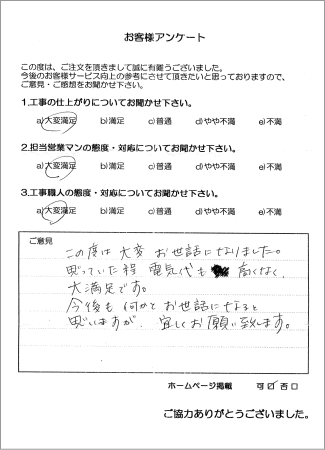 お客様アンケート
この度は、ご注文を頂きまして誠に有難うございました。
今後のお客様サービス向上の参考にさせて頂きたいと思っておりますので、
ご意見・ご感想をお聞かせ下さい。
1.工事の仕上がりについてお聞かせ下さい。
a)大変満足 b)満足 c)普通 d)やや不満 e)不満
2.担当営業マンの態度・対応についてお聞かせ下さい。
a)大変満足 b)満足 c)普通 d)やや不満 e)不満
3.工事職人の態度・対応についてお聞かせ下さい。
a)大変満足 b)満足 c)普通 d)やや不満 e)不満
ご意見
この度は大変お世話になりました。
思っていた程電気代も 高くなく、
大満足です。
今後も何かとお世話になると
思いますが、宜しくお願い致します。
ホームページ掲載 可☑否□
ご協力ありがとうございました。